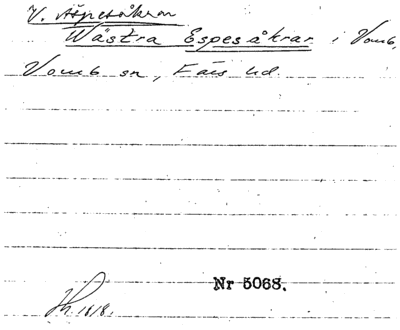 V. Äspesåkrar
Wästra Espesåkrar i Vomb,
Vomb sn, Färs hd.
Nr 5068.